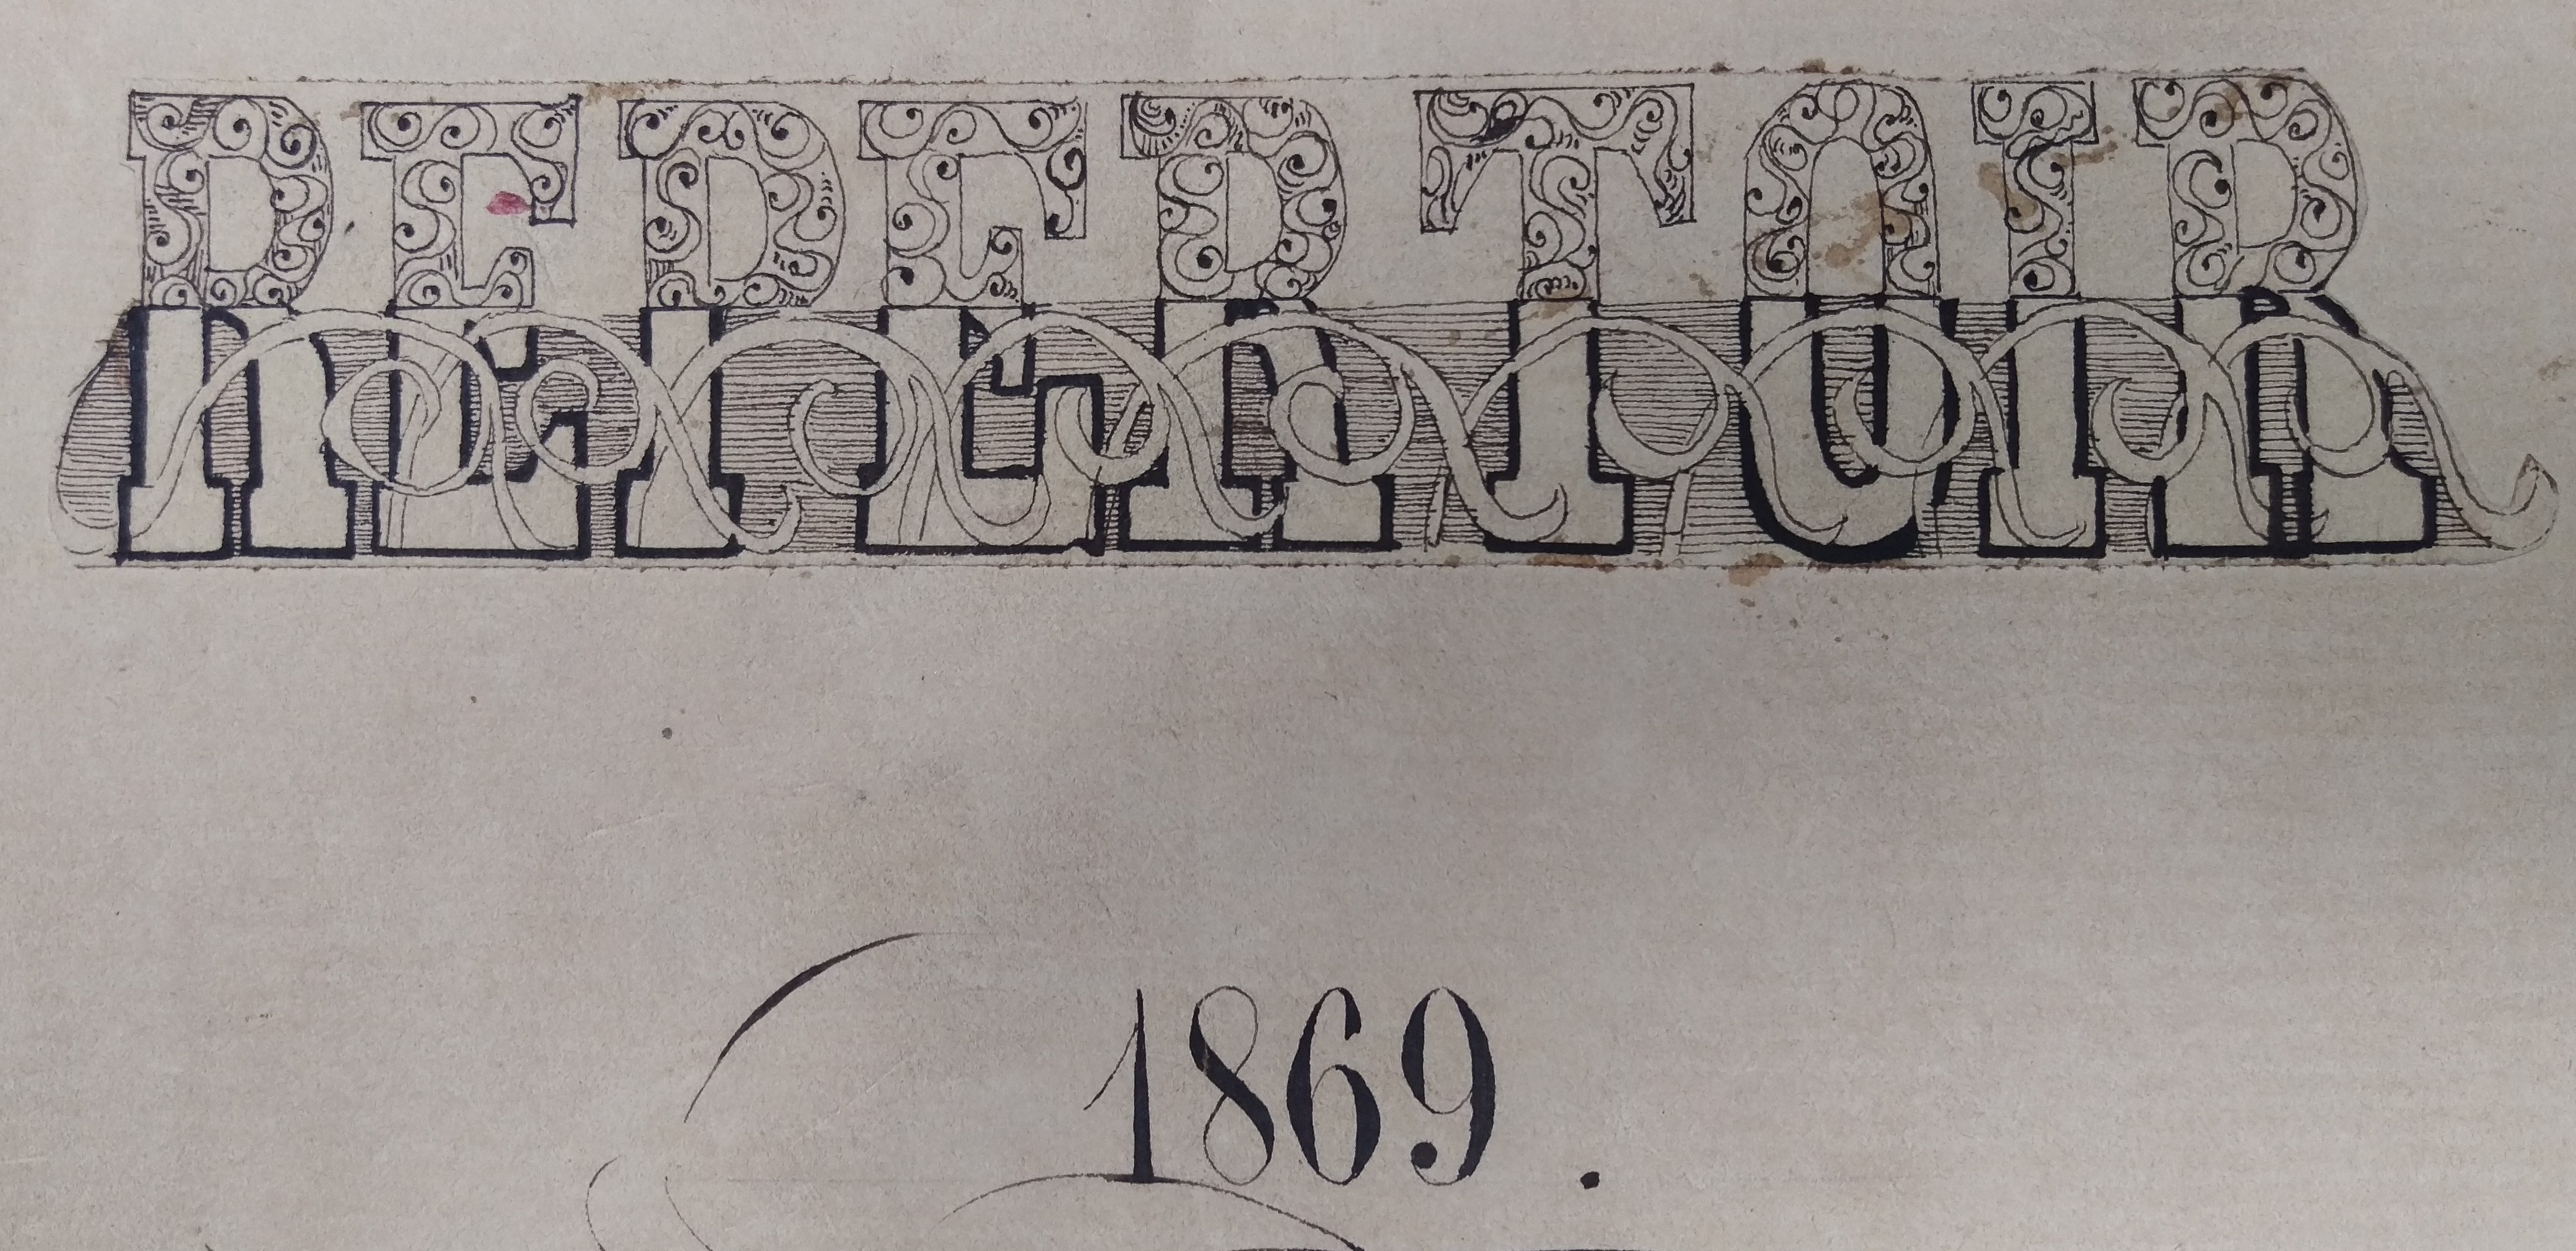 REPERTOIR
1869.